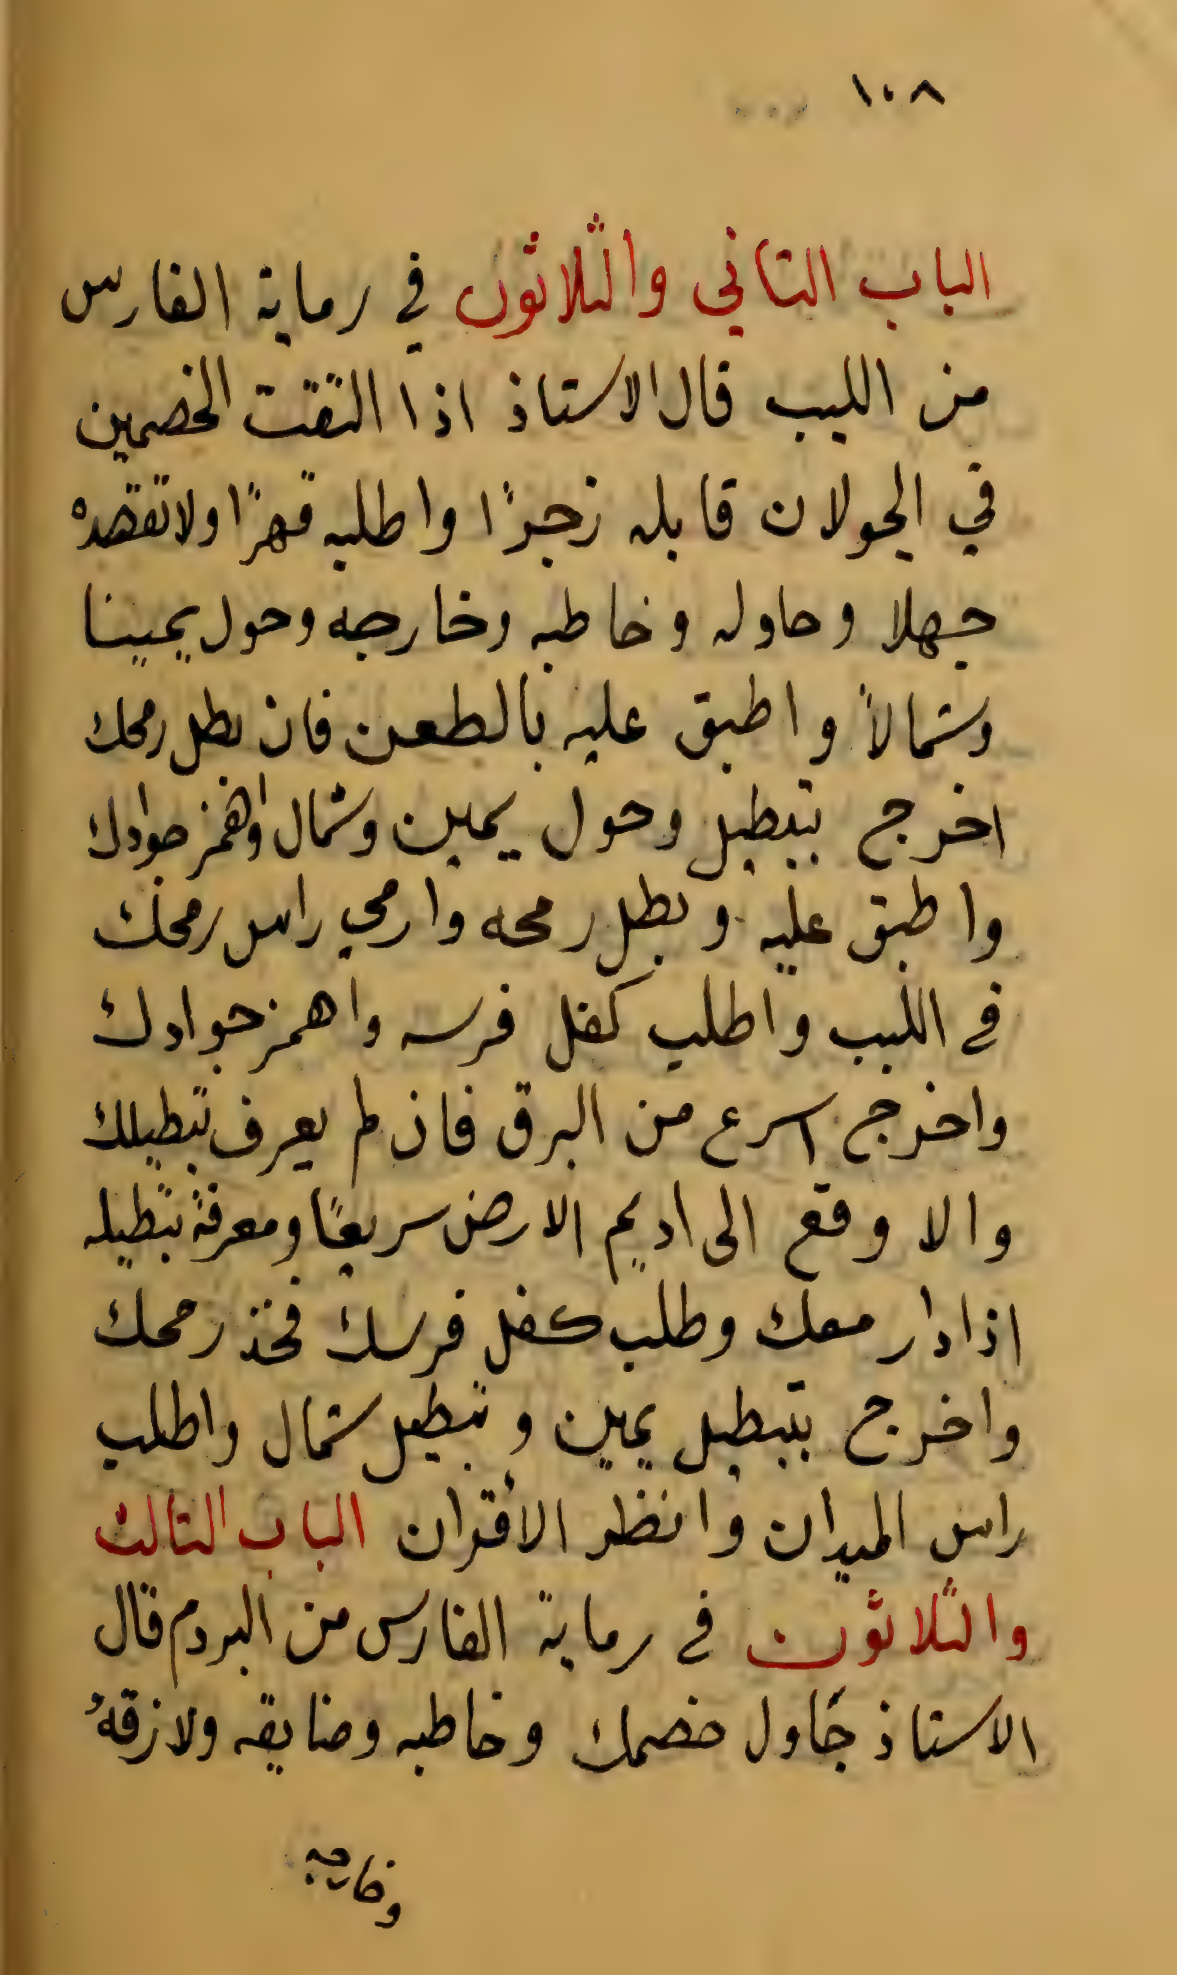 ١٠٨
الباب الثاني والثلاثون في رماية الفارس
من اللبب قال الاستاذ اذا التقت الخصمين
في الجولان قابله زجرًا واطلبه قهرًا ولا تقصده
جهلا وحاوله وخاطبه وخارجه وحول يمينا
وشمالاً واطبق عليه بالطعن فان بطل رمحك
اخرج بتبطيل وحول يمين وشمال واهمز جوادك
واطبق عليه وبطل رمحه وارمي راس رمحك
في اللبب واطلب كفل فرسه واهمز جوادك
واخرج اسرع من البرق فان لم يعرف تبطيلك
والا وقع الى اديم الارض سريعًا ومعرفة تبطيله
اذا دار معك وطلب كفل فرسك فخذ رمحك
واخرج بتبطيل يمين وتبطيل شمال واطلب
راس الميدان وانظر الاقران الباب الثالث
والثلاثون في رماية الفارس من البردم قال
الاستاذ جاول خصمك وخاطبه وضايقه ولازقه
وخارجه